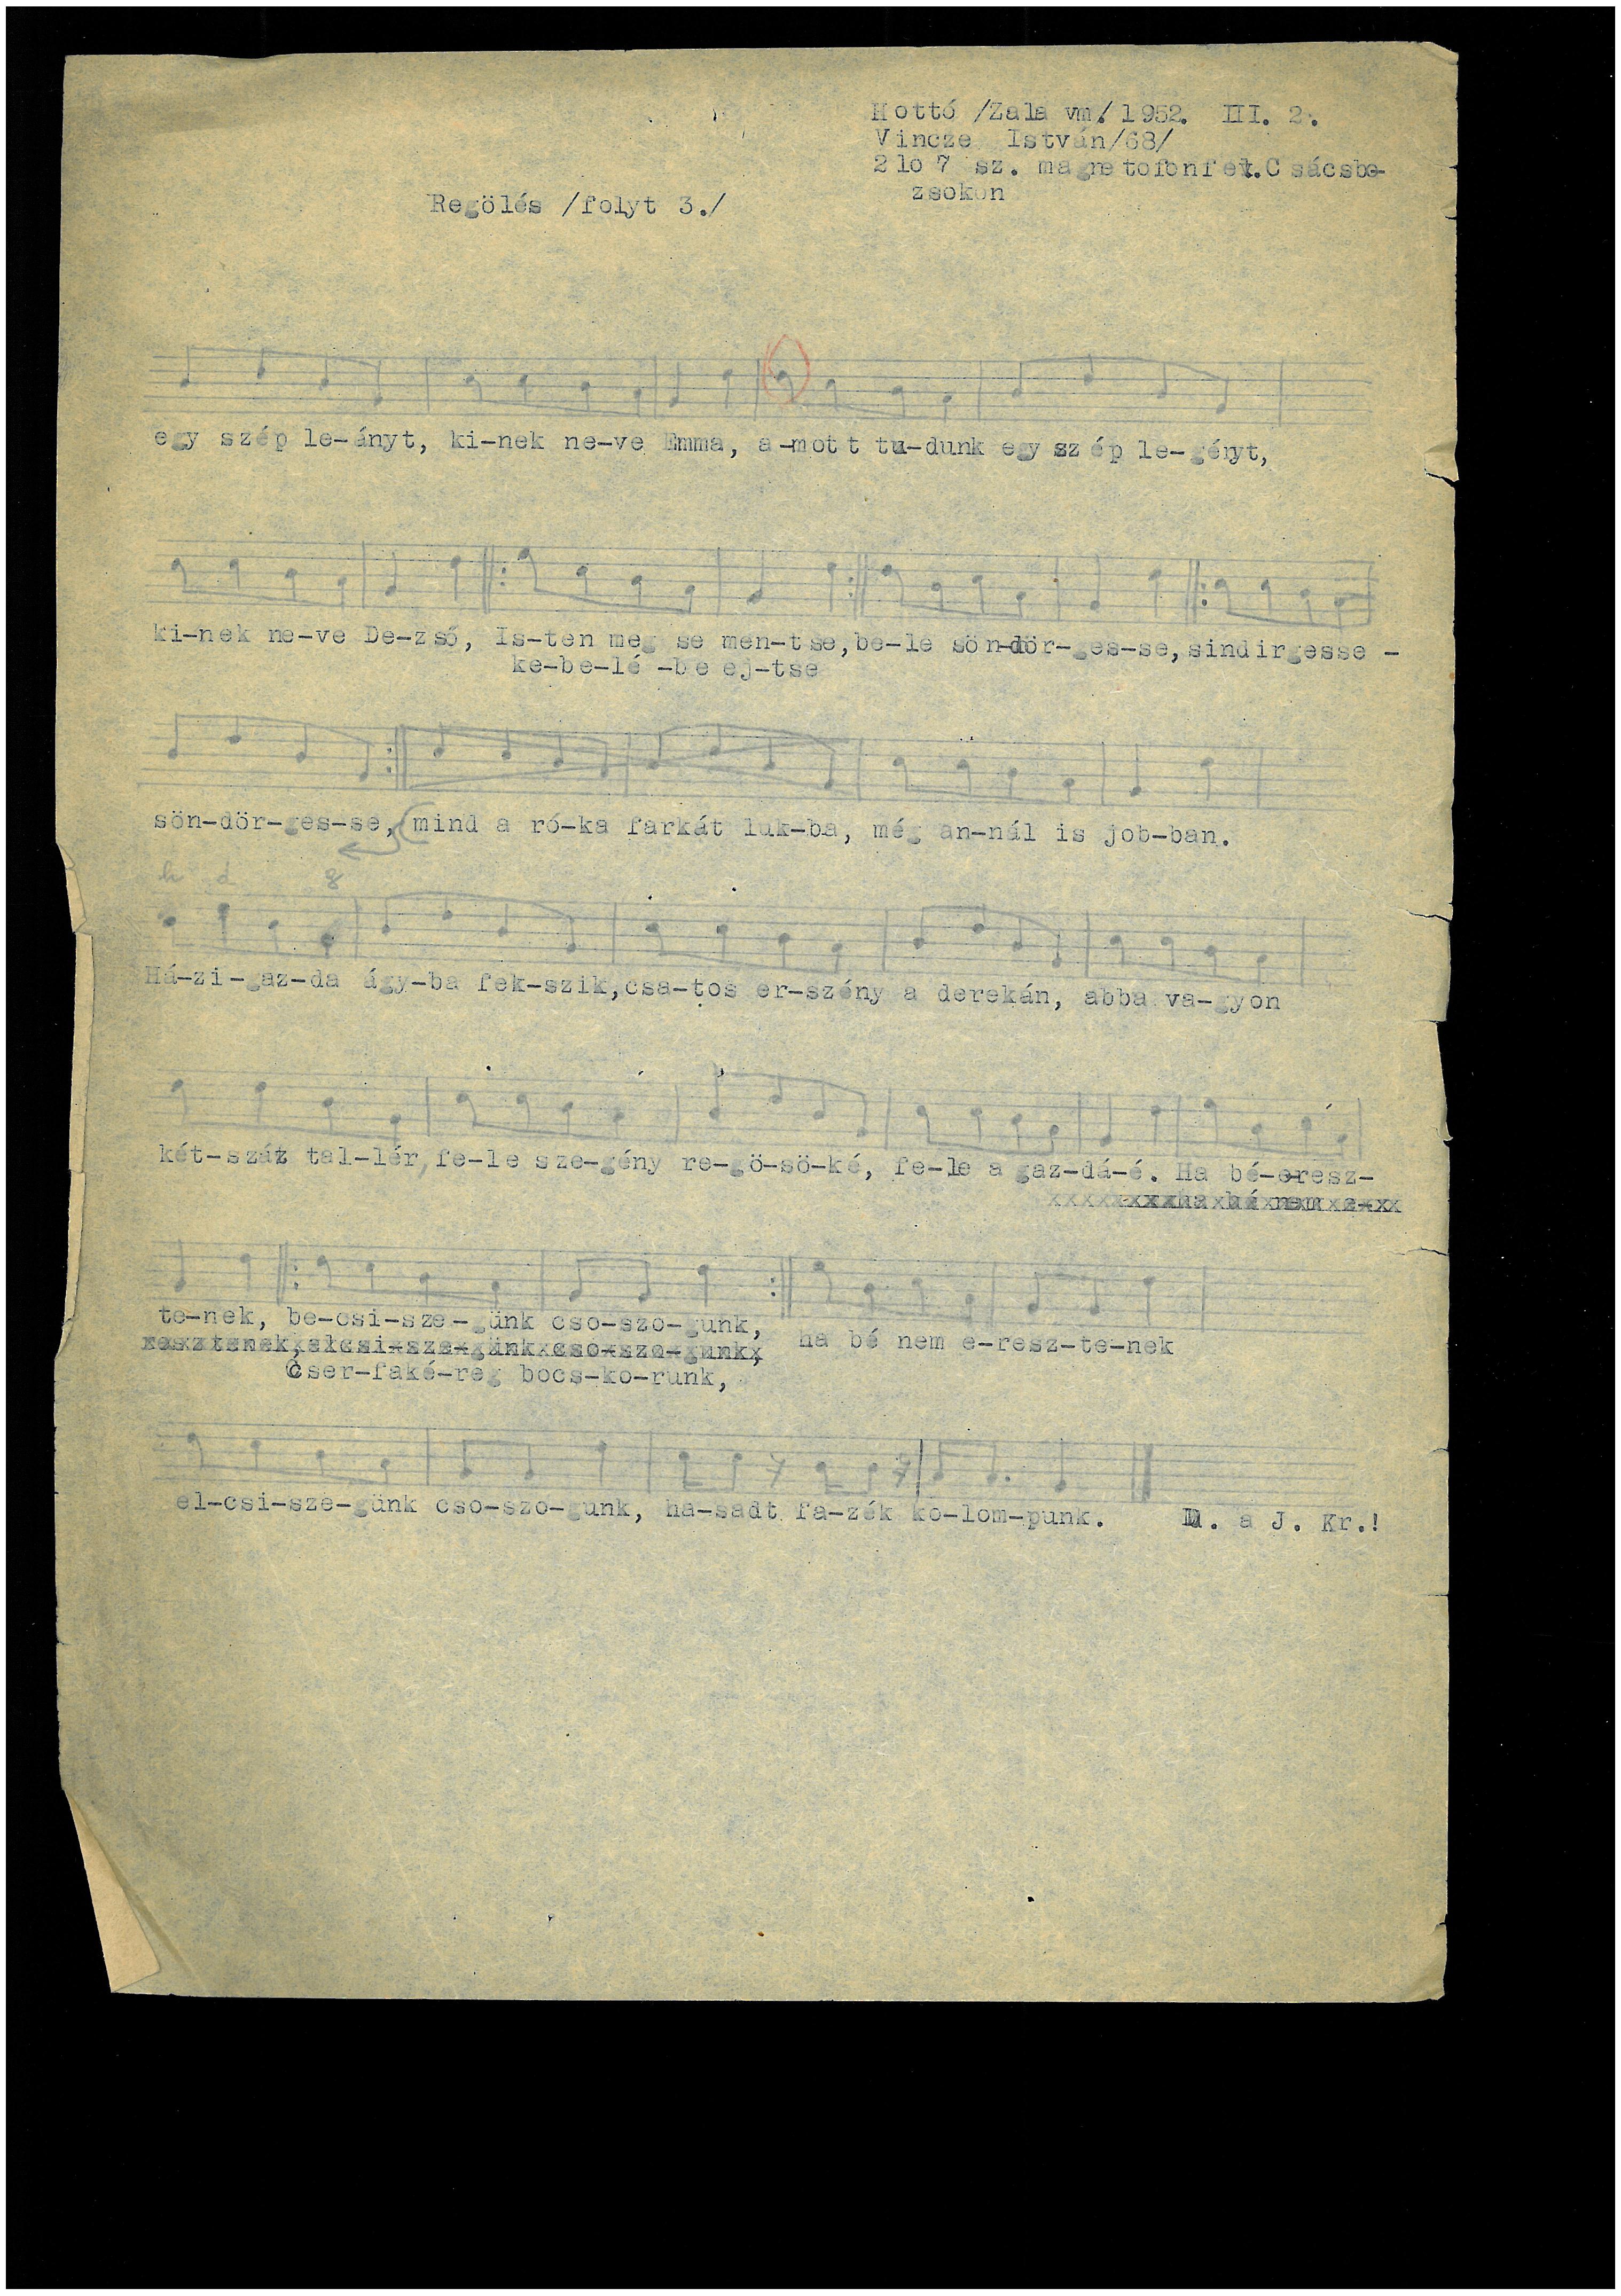 Hottó /Zala vm./ 1952. III. 2.
Vincze István/68/
2107 sz. magnetofonfelv. Csácsbo-
zsokon
Regölés /folyt 3./
egy szép le-ányt, ki-nek ne-ve Emma, a-mott tu-dunk egy szép le-gényt,
ki-nek ne-ve De-zső, Is-ten meg se men-tse, be-le sön-dör-ges-se, sindirgesse -
ke-be-lé -be ej-tse
sön-dör-ges-se, (mind a ró-ka farkát luk-ba, még an-nál is job-ban.
h d g
Há-zi-gaz-da ágy-ba fek-szik, csa-tos er-szény a derekán, abba va-gyon
két-száz tal-lér, fe-le sze-gény re-gö-sö-ké, fe-le a gaz-dá-é. Ha bé-eresz-
ha bé nem e-
te-nek, be-csi-sze-günk cso-szo-gunk, ha bé nem e-resz-te-nek
resztenek, elcsi-sze-günk cso-szo-gunk,
Cser-faké-reg bocs-ko-runk,
el-csi-sze-günk cso-szo-gunk, ha-sadt fa-zék ko-lom-punk. D. a J. Kr.!